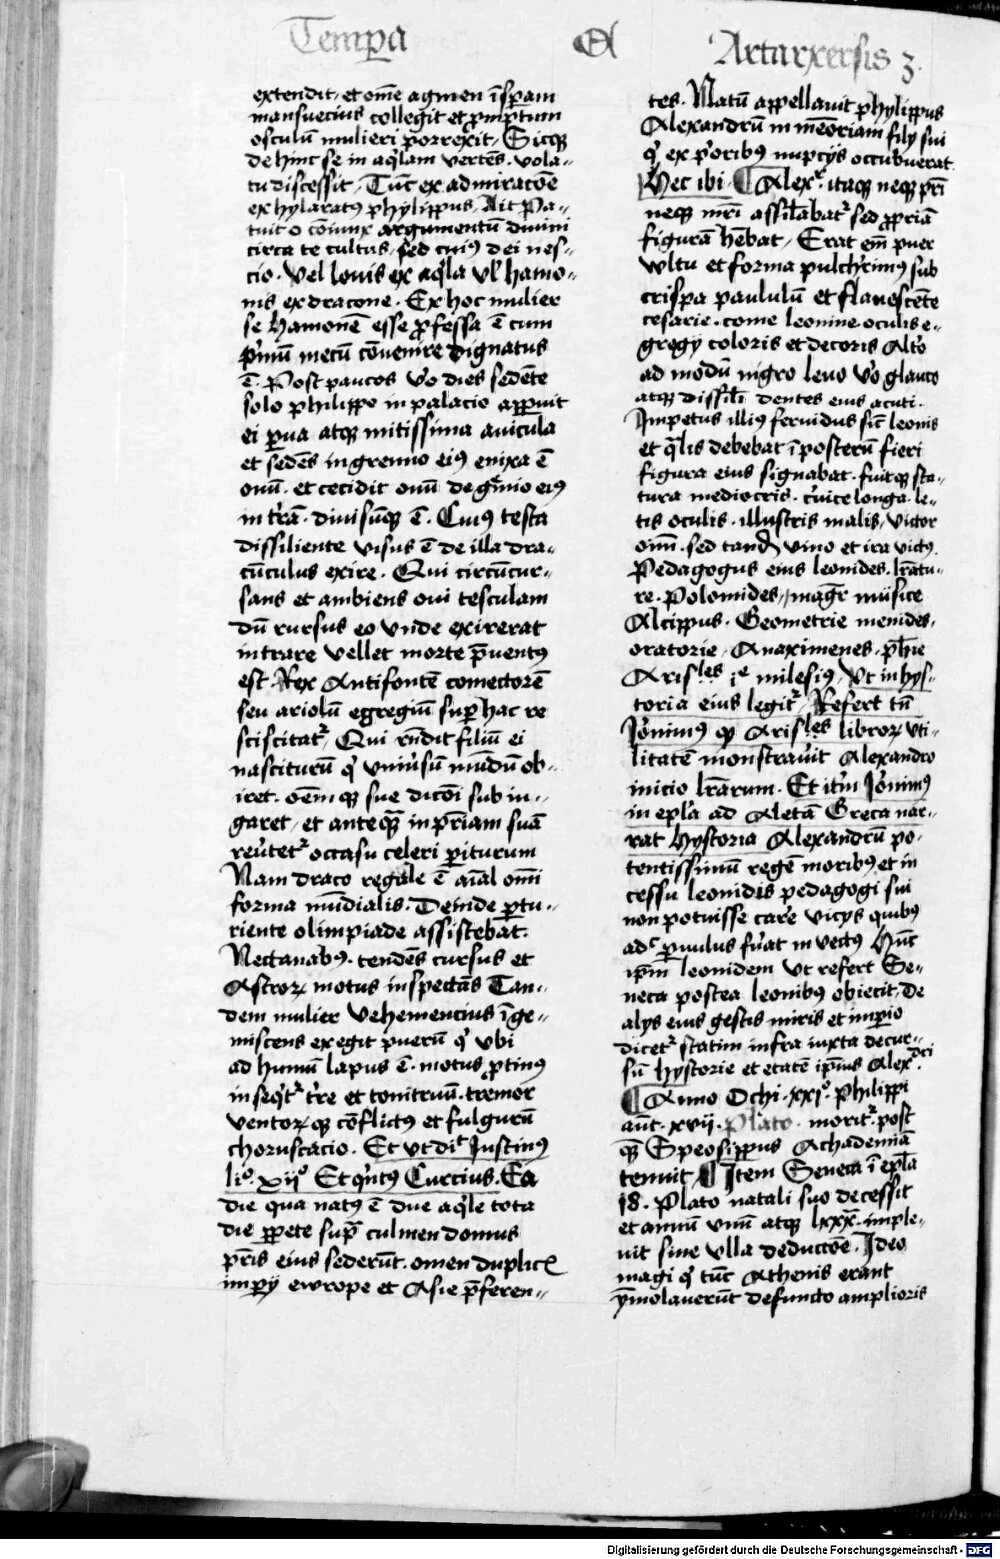 Tempa
Al
Artarxersis 3.
extendit. et om̄e agmen ī sp̄am
mansuecius collegit et ꝓmptum
osculū mulieri porrexit. Sicqꝫ
dehinc se in aq̄lam vertēs. vola-
tu discessit. Tūc ex admiracōe
exhylaratꝰ phylippus. Ait Pa-
tuit o cōiunx argumentū divini
circa te cultus. sed cuiꝰ dei nes-
cio. vel Iouis ex aq̄la vl' hamo-
nis ex dracone. Ex hoc mulier
se hamonē esse ꝓfessa ē cum
p̄mū mecū cōuenire dignatus
ē. Post paucos v̄o dies sedēte
solo philippo in palacio apparuit
ei ꝑua atqꝫ mitissima auicula
et sedēs in gremio eiꝰ enixa ē
ouū. et cecidit ouū de gr̄mio eiꝰ
in t̄ra. diuisūqꝫ ē. Cuiꝰ testa
dissiliente visus ē de illa dra-
cūculus exire. Qui circūcur-
sans et ambiens oui tesculam
dū rursus eo vnde exirerat
intrare vellet morte p̄uentꝰ
est. Rex Antifontē coniectorē
seu ariolū egregiū suꝑ hac re
sciscitatr̄. Qui rn̄dit filiū ei
nasciturū qͥ vniu'sū mūdū ob-
iret. oēm qꝫ sue dicōi sub iu-
garet. et anteqꝫ in p̄riam suā
reu'tetr̄ occasu celeri ꝑiturum
Nam draco regale ē aīal om̄i
forma mūdialis. Deinde ꝑtu-
riente olimpiade assistebat.
Nectanabꝰ. tendēs cursus et
Astroꝝ motus inspectās Tan-
dem mulier vehemencius īge-
miscens exegit puerū qͥ vbi
ad humū lapsus ē. motus ꝓtinꝰ
inseqͥtr̄ t̄re et tonitruū. tremor
ventoꝝ qꝫ cōflictꝰ et fulgurū
choruscacio. Et vt di͛ Iustinꝰ
liº. xijº Et qͥntꝰ Curcius. Ea
die qua natꝰ ē due aq̄le tota
die ꝑpete supͣ culmen domus
p̄ris eius sederūt. omen duplicͥ
impij ewrope et Asie p̄feren-
tes. Natū appellauit phylippus
Alexandrū in mēoriam filij sui
qͥ ex p̄oribꝰ nupcijs occubuerat.
Hec ibi. ¶ Alexr̄. itaqꝫ neqꝫ pr̄i
neqꝫ mr̄i assil̄abatr̄ sed ꝓpriā
figurā hēbat. Erat em̄ puer
vltu et forma pulch̄rimꝰ sub
crispa paululū et flauescēte
cesarie. come leonine oculis e-
gregij coloris et decoris Alt'o
ad modū nigro leuo v̄o glauco
atqꝫ dissil̄i dentes eius acuti.
Impetus illiꝰ feruidus sic̄ leonis
et qͣlis debebat ī posterū fieri
figura eius signabat. fuitqꝫ sta-
tura mediocris. c̄uice longa. le-
tis oculis. illustris malis, victor
oīm. sed tandē vino et ira victꝰ.
Pedagogus eius leonides. lr̄atu-
re. Polomides. magr̄ musice
Alcippus. Geometrie menides.
oratorie. Anaximenes. ph̄ie
Aris͛les ie milesiꝰ, Vt in hys-
toria eius legitr̄. Refert tn̄
Iōnimꝰ qꝫ Aris͛les libroꝝ vti-
litatē monstrauit Alexandro
inicio lr̄arum. Et it̄m Iōnimꝰ
in epl̄a ad Aletā Greca nar-
rat hystoria Alexandrū po-
tentissimū regē moribꝰ et in
cessu leonidis pedagogi sui
non potuisse car̄e vicijs quibꝰ
adͨ ꝑuulus fu'at in vectꝰ Hūc
ip̄m leonidem vt refert Se-
neca postea leonibꝰ obiecit. De
alijs eius gestis miris et imperio
dicetr̄ statim infra iuxta decur-
sū hystorie et etatē ip̄ius Alexdri.
¶ Anno Ochi. xxiº. Philippi
aūt. xvij. Plato. moritr̄. post
qͣ Speosippus Achademiā
tenuit ¶ Item Seneca ī epl̄a
18. Plato natali suo decessit
et annū vnū atqꝫ lxxx. imple-
uit sine vlla deductōe. Ideo
magi qͥ tūc Athenis erant
ȳmolauerūt defuncto amplioris
Digitalisierung gefördert durch die Deutsche Forschungsgemeinschaft - DFG